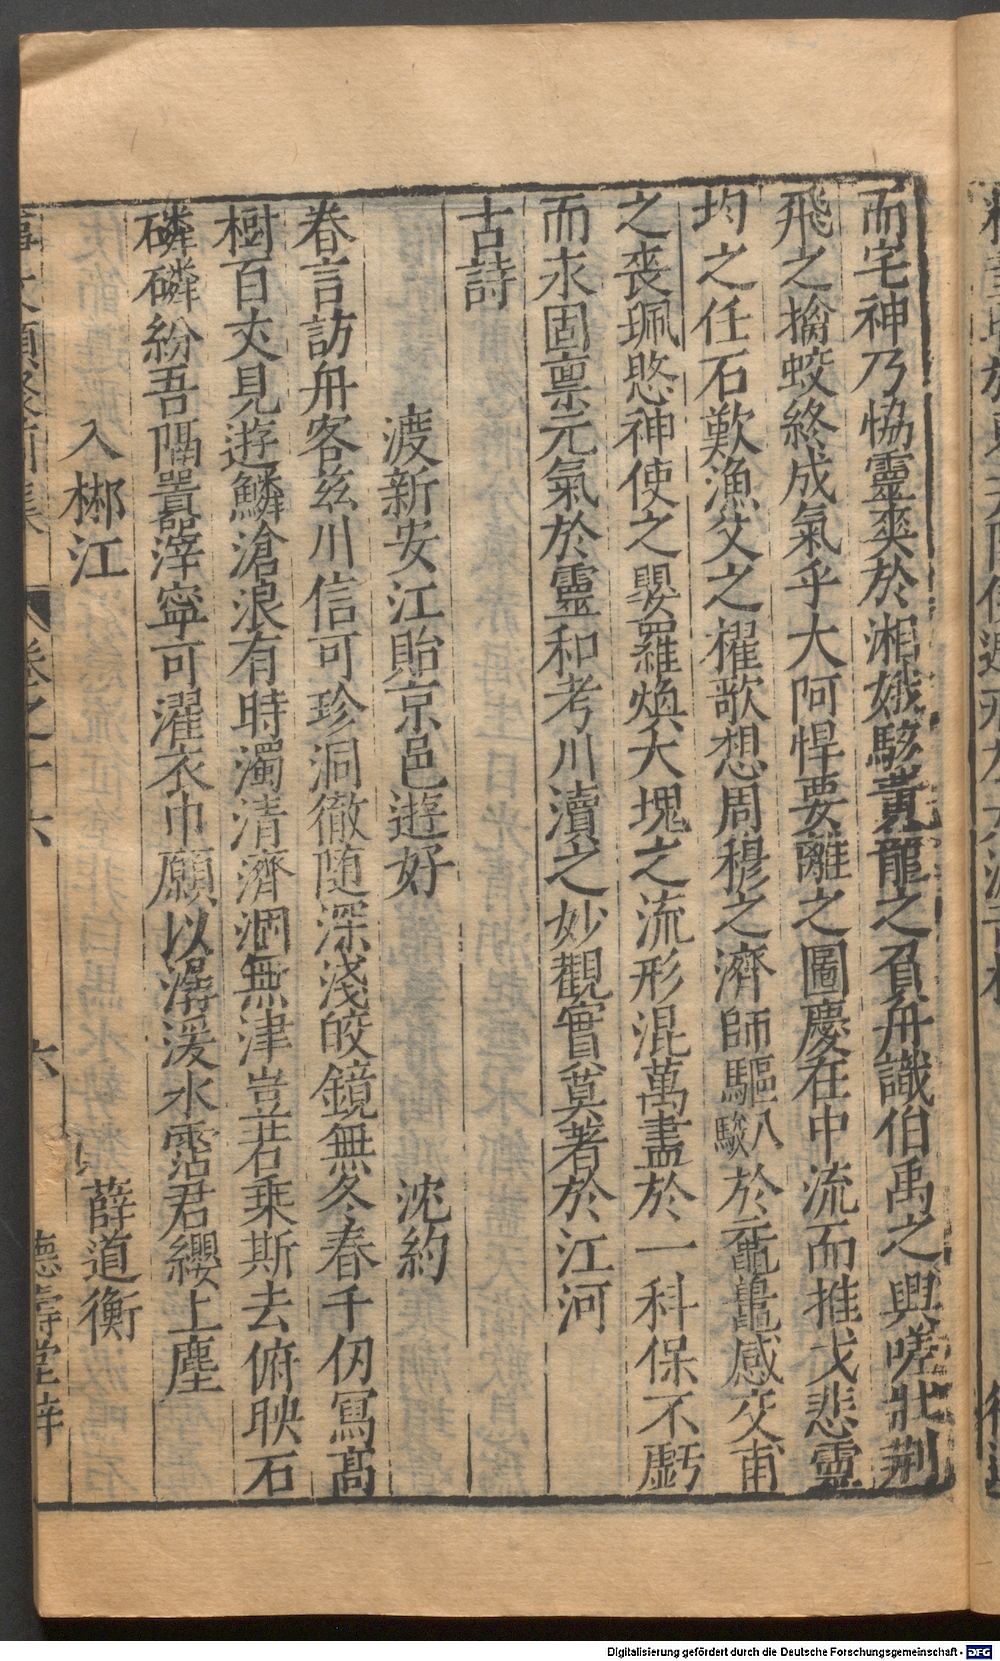 而宅神乃恊靈爽於湘娥駭黃龍之負舟識伯禹之興嗟壯荆
飛之擒蛟終成氣乎大阿悍要離之圖慶在中流而推戈悲靈
均之任石歎漁父之櫂歌想周穆之濟師驅八駿於黿鼉感交甫
之喪珮愍神使之嬰羅煥大塊之流形混萬盡於一科保不虧
而永固禀元氣於靈和考川瀆之妙觀實莫著於江河
古詩
渡新安江貽京邑遊好 沈約
眷言訪舟客兹川信可珍洞徹随深淺皎鏡無冬春千仞寫髙
樹百丈見遊鱗滄浪有時濁清濟涸無津豈若乗斯去俯映石
磷磷紛吾隔囂滓寧可濯衣巾願以潺湲水霑君纓上塵
入郴江 薛道衡
卷之十六 六 德壽堂梓
Digitalisierung gefördert durch die Deutsche Forschungsgemeinschaft - DFG